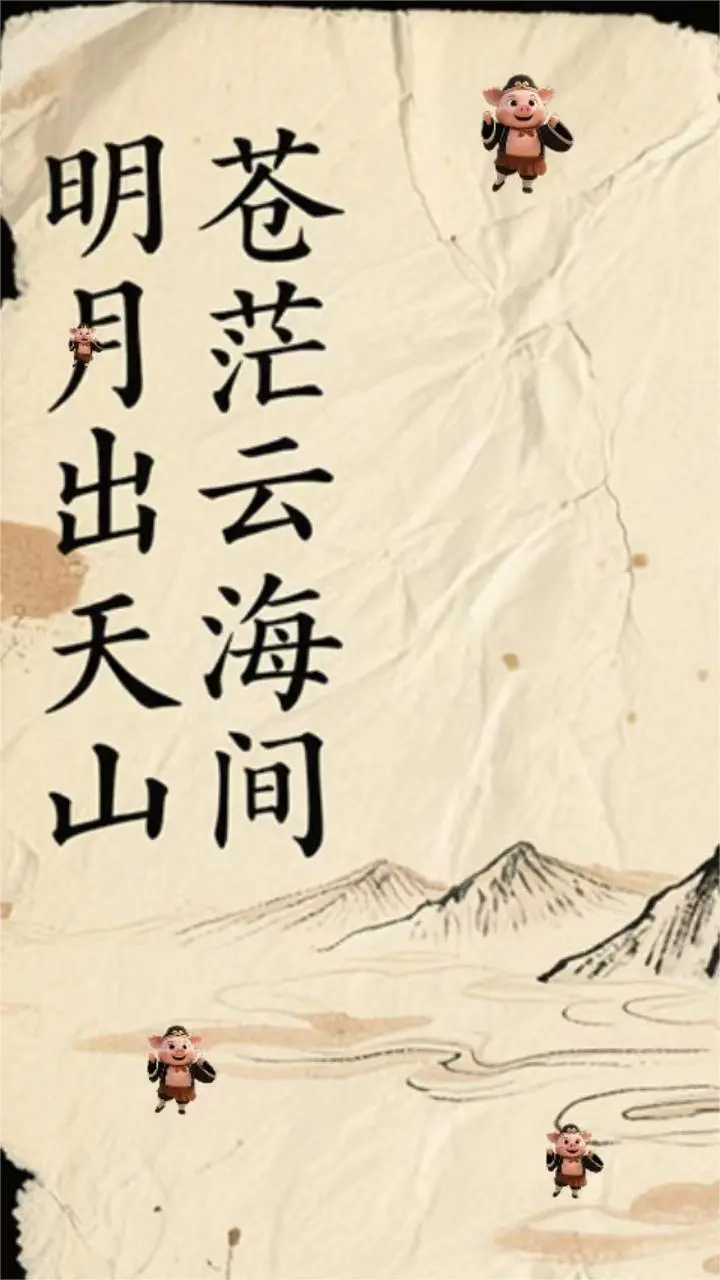 明月出天山
苍茫云海间